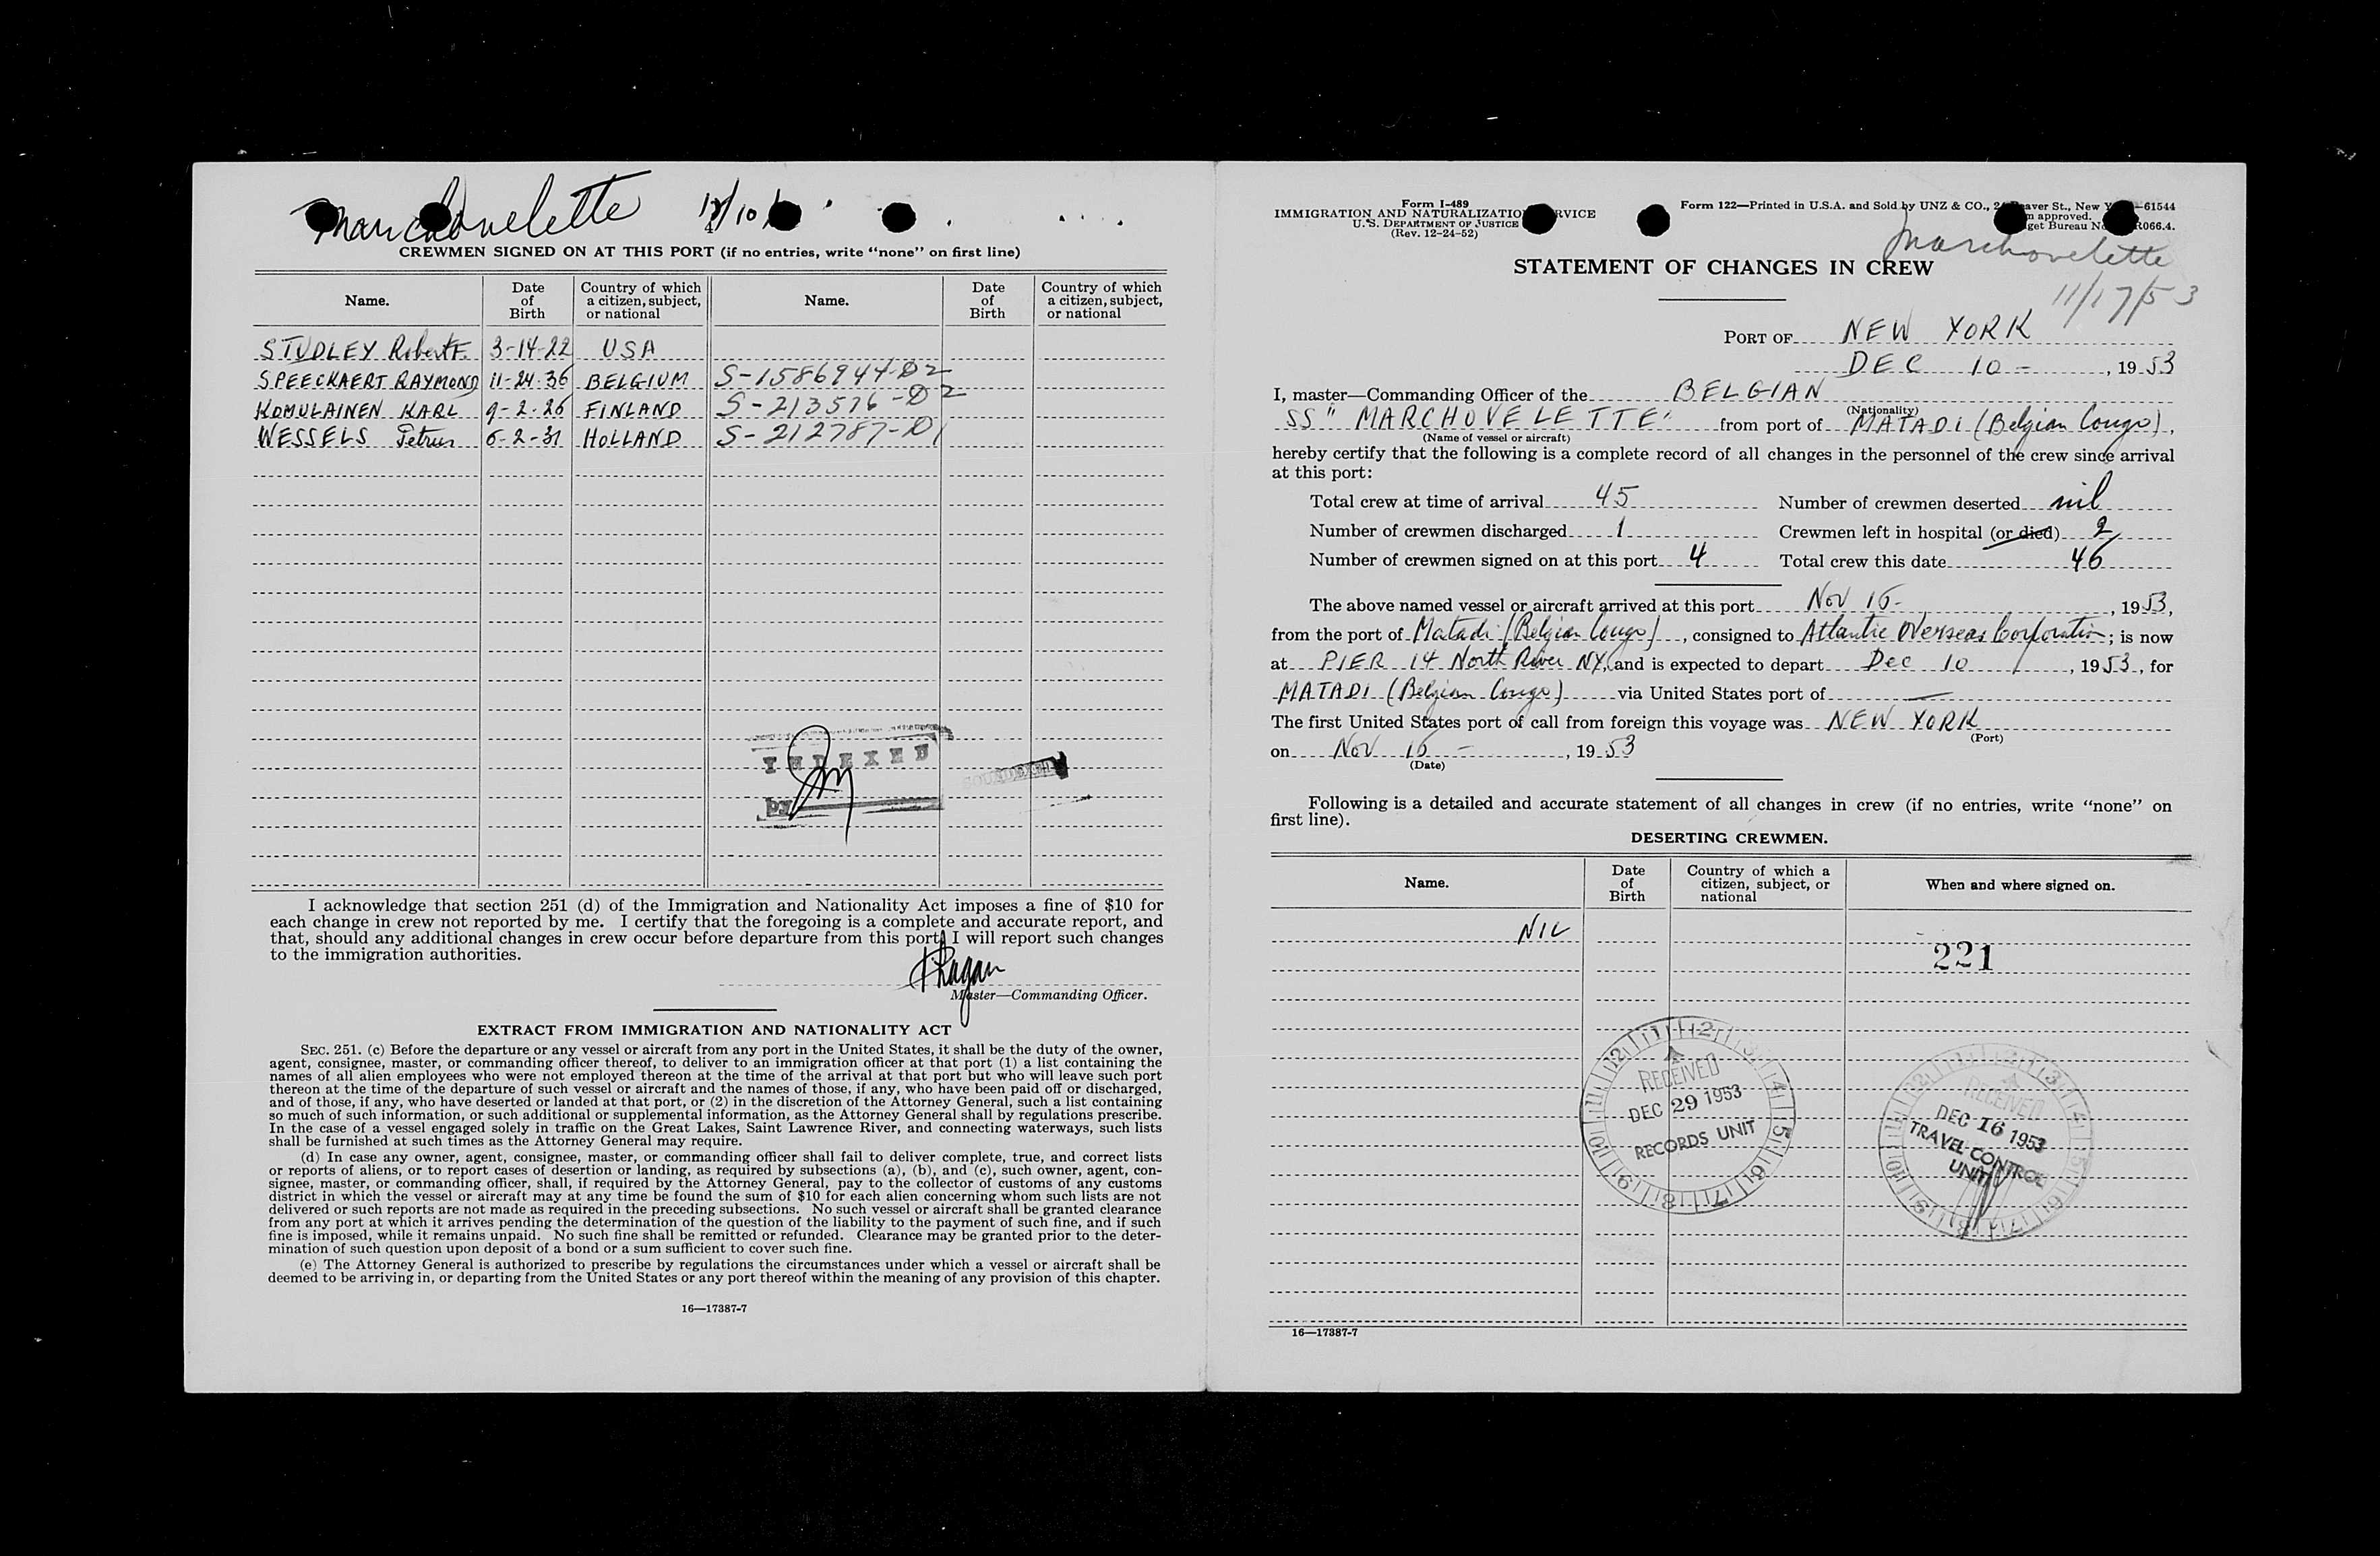 Marchovelette 12/10
CREWMEN SIGNED ON AT THIS PORT (if no entries, write “none” on first line)
Name. Date of Birth Country of which a citizen, subject, or national Name. Date of Birth Country of which a citizen, subject, or national
STUDLEY Robert F. 3-14-22 USA
SPEECKAERT RAYMOND 11-24-36 BELGIUM S-1586944-D2
KOMULAINEN KARL 9-2-26 FINLAND S-213576-D2
WESSELS Petrus 6-2-31 HOLLAND S-212787-D1
INDEXED
by
I acknowledge that section 251 (d) of the Immigration and Nationality Act imposes a fine of $10 for
each change in crew not reported by me. I certify that the foregoing is a complete and accurate report, and
that, should any additional changes in crew occur before departure from this port, I will report such changes
to the immigration authorities.
Master—Commanding Officer.
EXTRACT FROM IMMIGRATION AND NATIONALITY ACT
SEC. 251. (c) Before the departure or any vessel or aircraft from any port in the United States, it shall be the duty of the owner,
agent, consignee, master, or commanding officer thereof, to deliver to an immigration officer at that port (1) a list containing the
names of all alien employees who were not employed thereon at the time of the arrival at that port but who will leave such port
thereon at the time of the departure of such vessel or aircraft and the names of those, if any, who have been paid off or discharged,
and of those, if any, who have deserted or landed at that port, or (2) in the discretion of the Attorney General, such a list containing
so much of such information, or such additional or supplemental information, as the Attorney General shall by regulations prescribe.
In the case of a vessel engaged solely in traffic on the Great Lakes, Saint Lawrence River, and connecting waterways, such lists
shall be furnished at such times as the Attorney General may require.
(d) In case any owner, agent, consignee, master, or commanding officer shall fail to deliver complete, true, and correct lists
or reports of aliens, or to report cases of desertion or landing, as required by subsections (a), (b), and (c), such owner, agent, con-
signee, master, or commanding officer, shall, if required by the Attorney General, pay to the collector of customs of any customs
district in which the vessel or aircraft may at any time be found the sum of $10 for each alien concerning whom such lists are not
delivered or such reports are not made as required in the preceding subsections. No such vessel or aircraft shall be granted clearance
from any port at which it arrives pending the determination of the question of the liability to the payment of such fine, and if such
fine is imposed, while it remains unpaid. No such fine shall be remitted or refunded. Clearance may be granted prior to the deter-
mination of such question upon deposit of a bond or a sum sufficient to cover such fine.
(e) The Attorney General is authorized to prescribe by regulations the circumstances under which a vessel or aircraft shall be
deemed to be arriving in, or departing from the United States or any port thereof within the meaning of any provision of this chapter.
16—17387-7
Form I-489
IMMIGRATION AND NATURALIZATION SERVICE
U. S. DEPARTMENT OF JUSTICE
(Rev. 12-24-52)
Form 122—Printed in U.S.A. and Sold by UNZ & CO., 24 Beaver St., New Y —61544
m approved.
get Bureau No. R066.4.
Marchovelette
11/17/53
STATEMENT OF CHANGES IN CREW
PORT OF NEW YORK
DEC 10 - , 1953
I, master—Commanding Officer of the BELGIAN
(Nationality)
SS " MARCHOVELETTE" from port of MATADI (Belgian Congo),
(Name of vessel or aircraft)
hereby certify that the following is a complete record of all changes in the personnel of the crew since arrival
at this port:
Total crew at time of arrival 45 Number of crewmen deserted nil
Number of crewmen discharged 1 Crewmen left in hospital (or died) 2
Number of crewmen signed on at this port 4 Total crew this date 46
The above named vessel or aircraft arrived at this port Nov 16 - , 1953,
from the port of Matadi (Belgian Congo), consigned to Atlantic Overseas Corporation; is now
at PIER 14 North River NY, and is expected to depart Dec 10, 1953, for
MATADI (Belgian Congo) via United States port of —
The first United States port of call from foreign this voyage was NEW YORK
(Port)
on Nov 16 - , 1953
(Date)
Following is a detailed and accurate statement of all changes in crew (if no entries, write “none” on
first line).
DESERTING CREWMEN.
Name. Date of Birth Country of which a citizen, subject, or national When and where signed on.
NIL
221
RECEIVED
DEC 29 1953
RECORDS UNIT
RECEIVED
DEC 16 1953
TRAVEL CONTROL
UNIT
16—17387-7